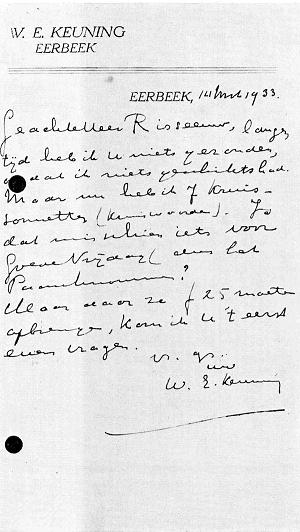 W. E. KEUNING
EERBEEK
EERBEEK, 14 Mrt 1933.
Geachte Heer Risseeuw, lange
tijd heb ik U niets gezonden,
omdat ik niets geschikts had.
Maar nu heb ik 7 kruis-
sonnetten (kruiswoorden). Is
dat misschien iets voor
Goede Vrijdag ( het
Paaschnummer?
Maar daar ze f 25 moeten
opbrengen, kom ik U 't eerst
even vragen.
Uw
W. E. Keuning